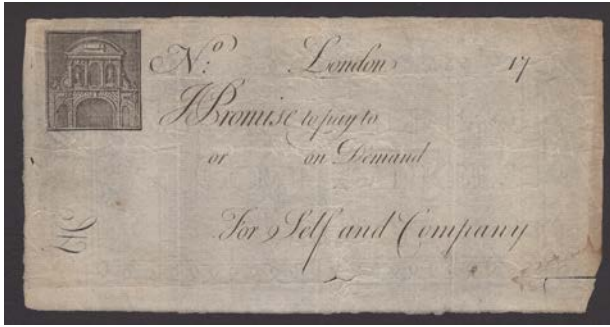 No: London 17
I Promise to pay to
or on Demand
For Self and Company